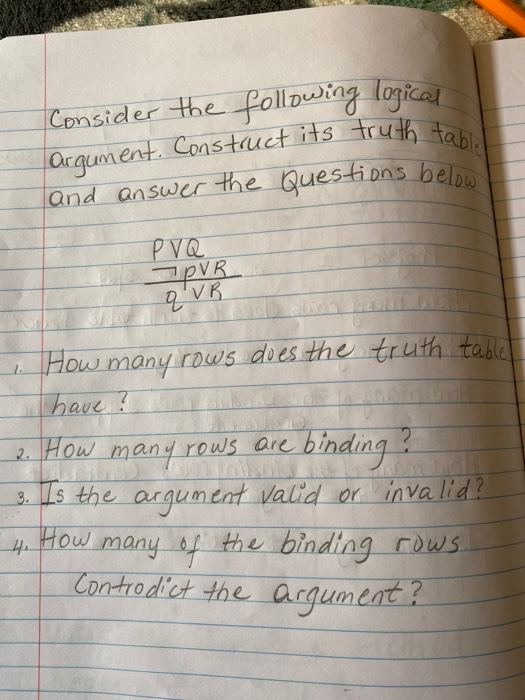 Consider the following logical
argument. Construct its truth table
and answer the Questions below
PVQ
¬pVR
q VR
1. How many rows does the truth table
have?
2. How many rows are binding?
3. Is the argument valid or invalid?
4. How many of the binding rows
Controdict the argument?